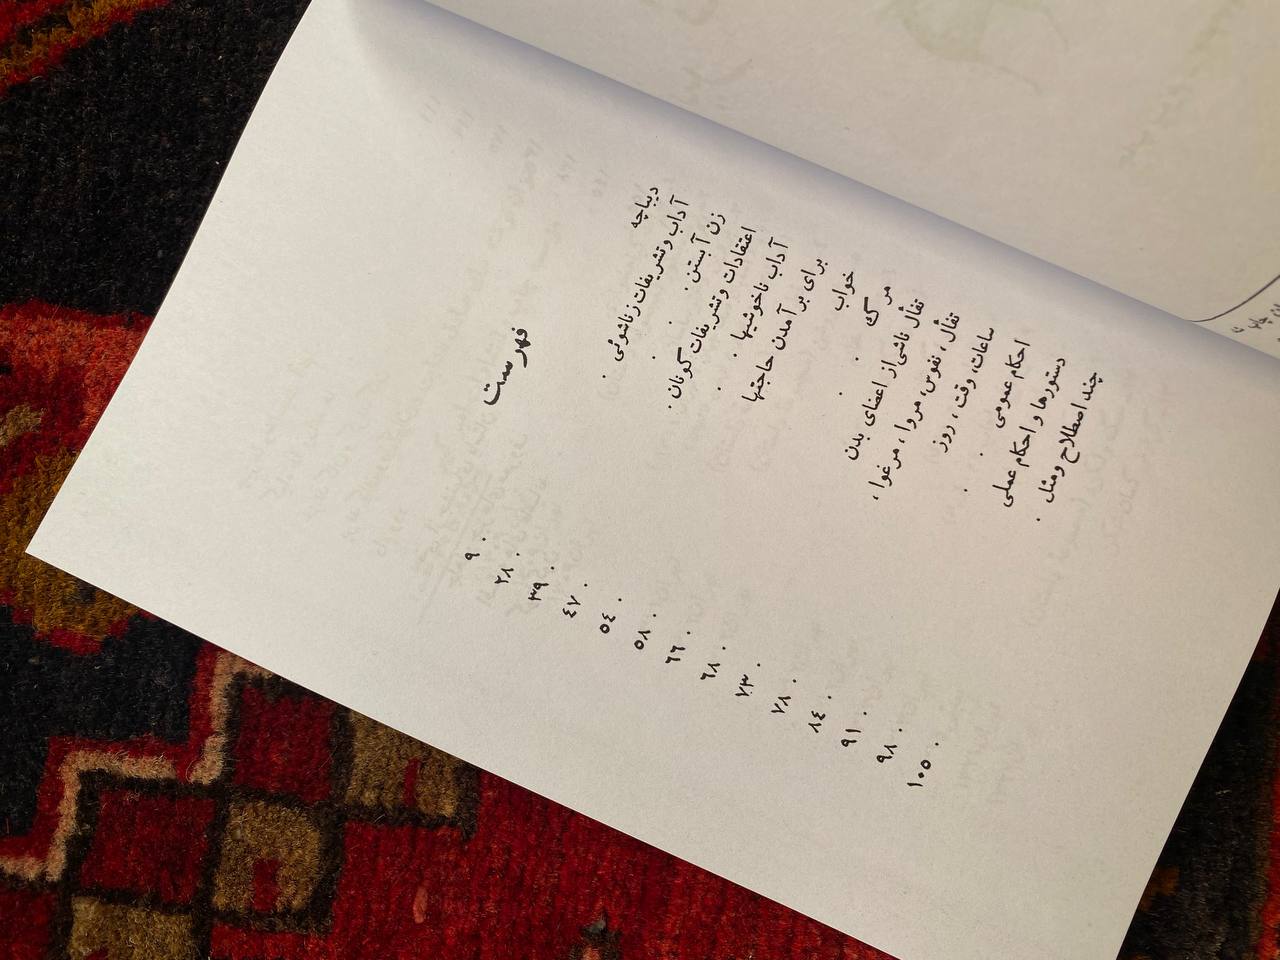 فهرست
دیباچه . ۹
آداب و تشریفات زناشوئی . ۲۸
زن آبستن . . . ۳۹
اعتقادات و تشریفات . ۴۷
آداب ناخوشیها . . ۵۴
برای بر آمدن حاجتها . ۵۸
خواب . . ۶۶
مرگ . . ۶۸
تفأل ناشی از اعضای بدن . ۷۳
تفأل ، نفوس، مروا ، مرغوا ، . ۷۸
ساعات، وقت ، روز . ۸۴
احکام عمومی . . ۹۱
دستورها و احکام عملی . ۹۸
چند اصطلاح ومثل . . ۱۰۵